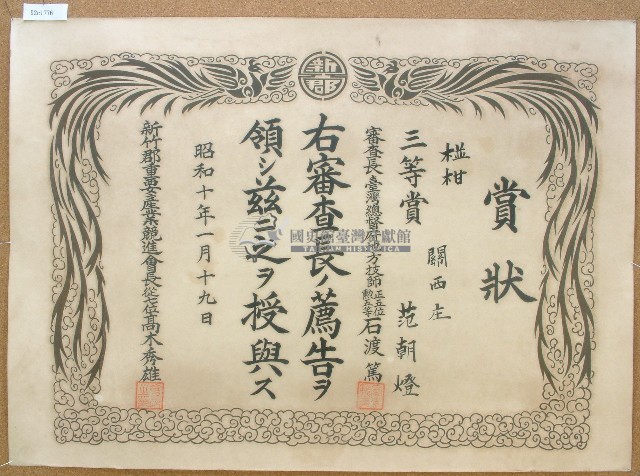 新郡
賞狀
椪柑
關西庄
三等賞 范朝燈
審査長臺灣總督府地方技師正五位勲五等石渡篤
右審査長ノ薦告ヲ
領シ茲ニ之ヲ授與ス
昭和十年一月十九日
新竹郡重要産業競進會長從七位高木秀雄
國史館臺灣文獻館
TAIWAN HISTORICA